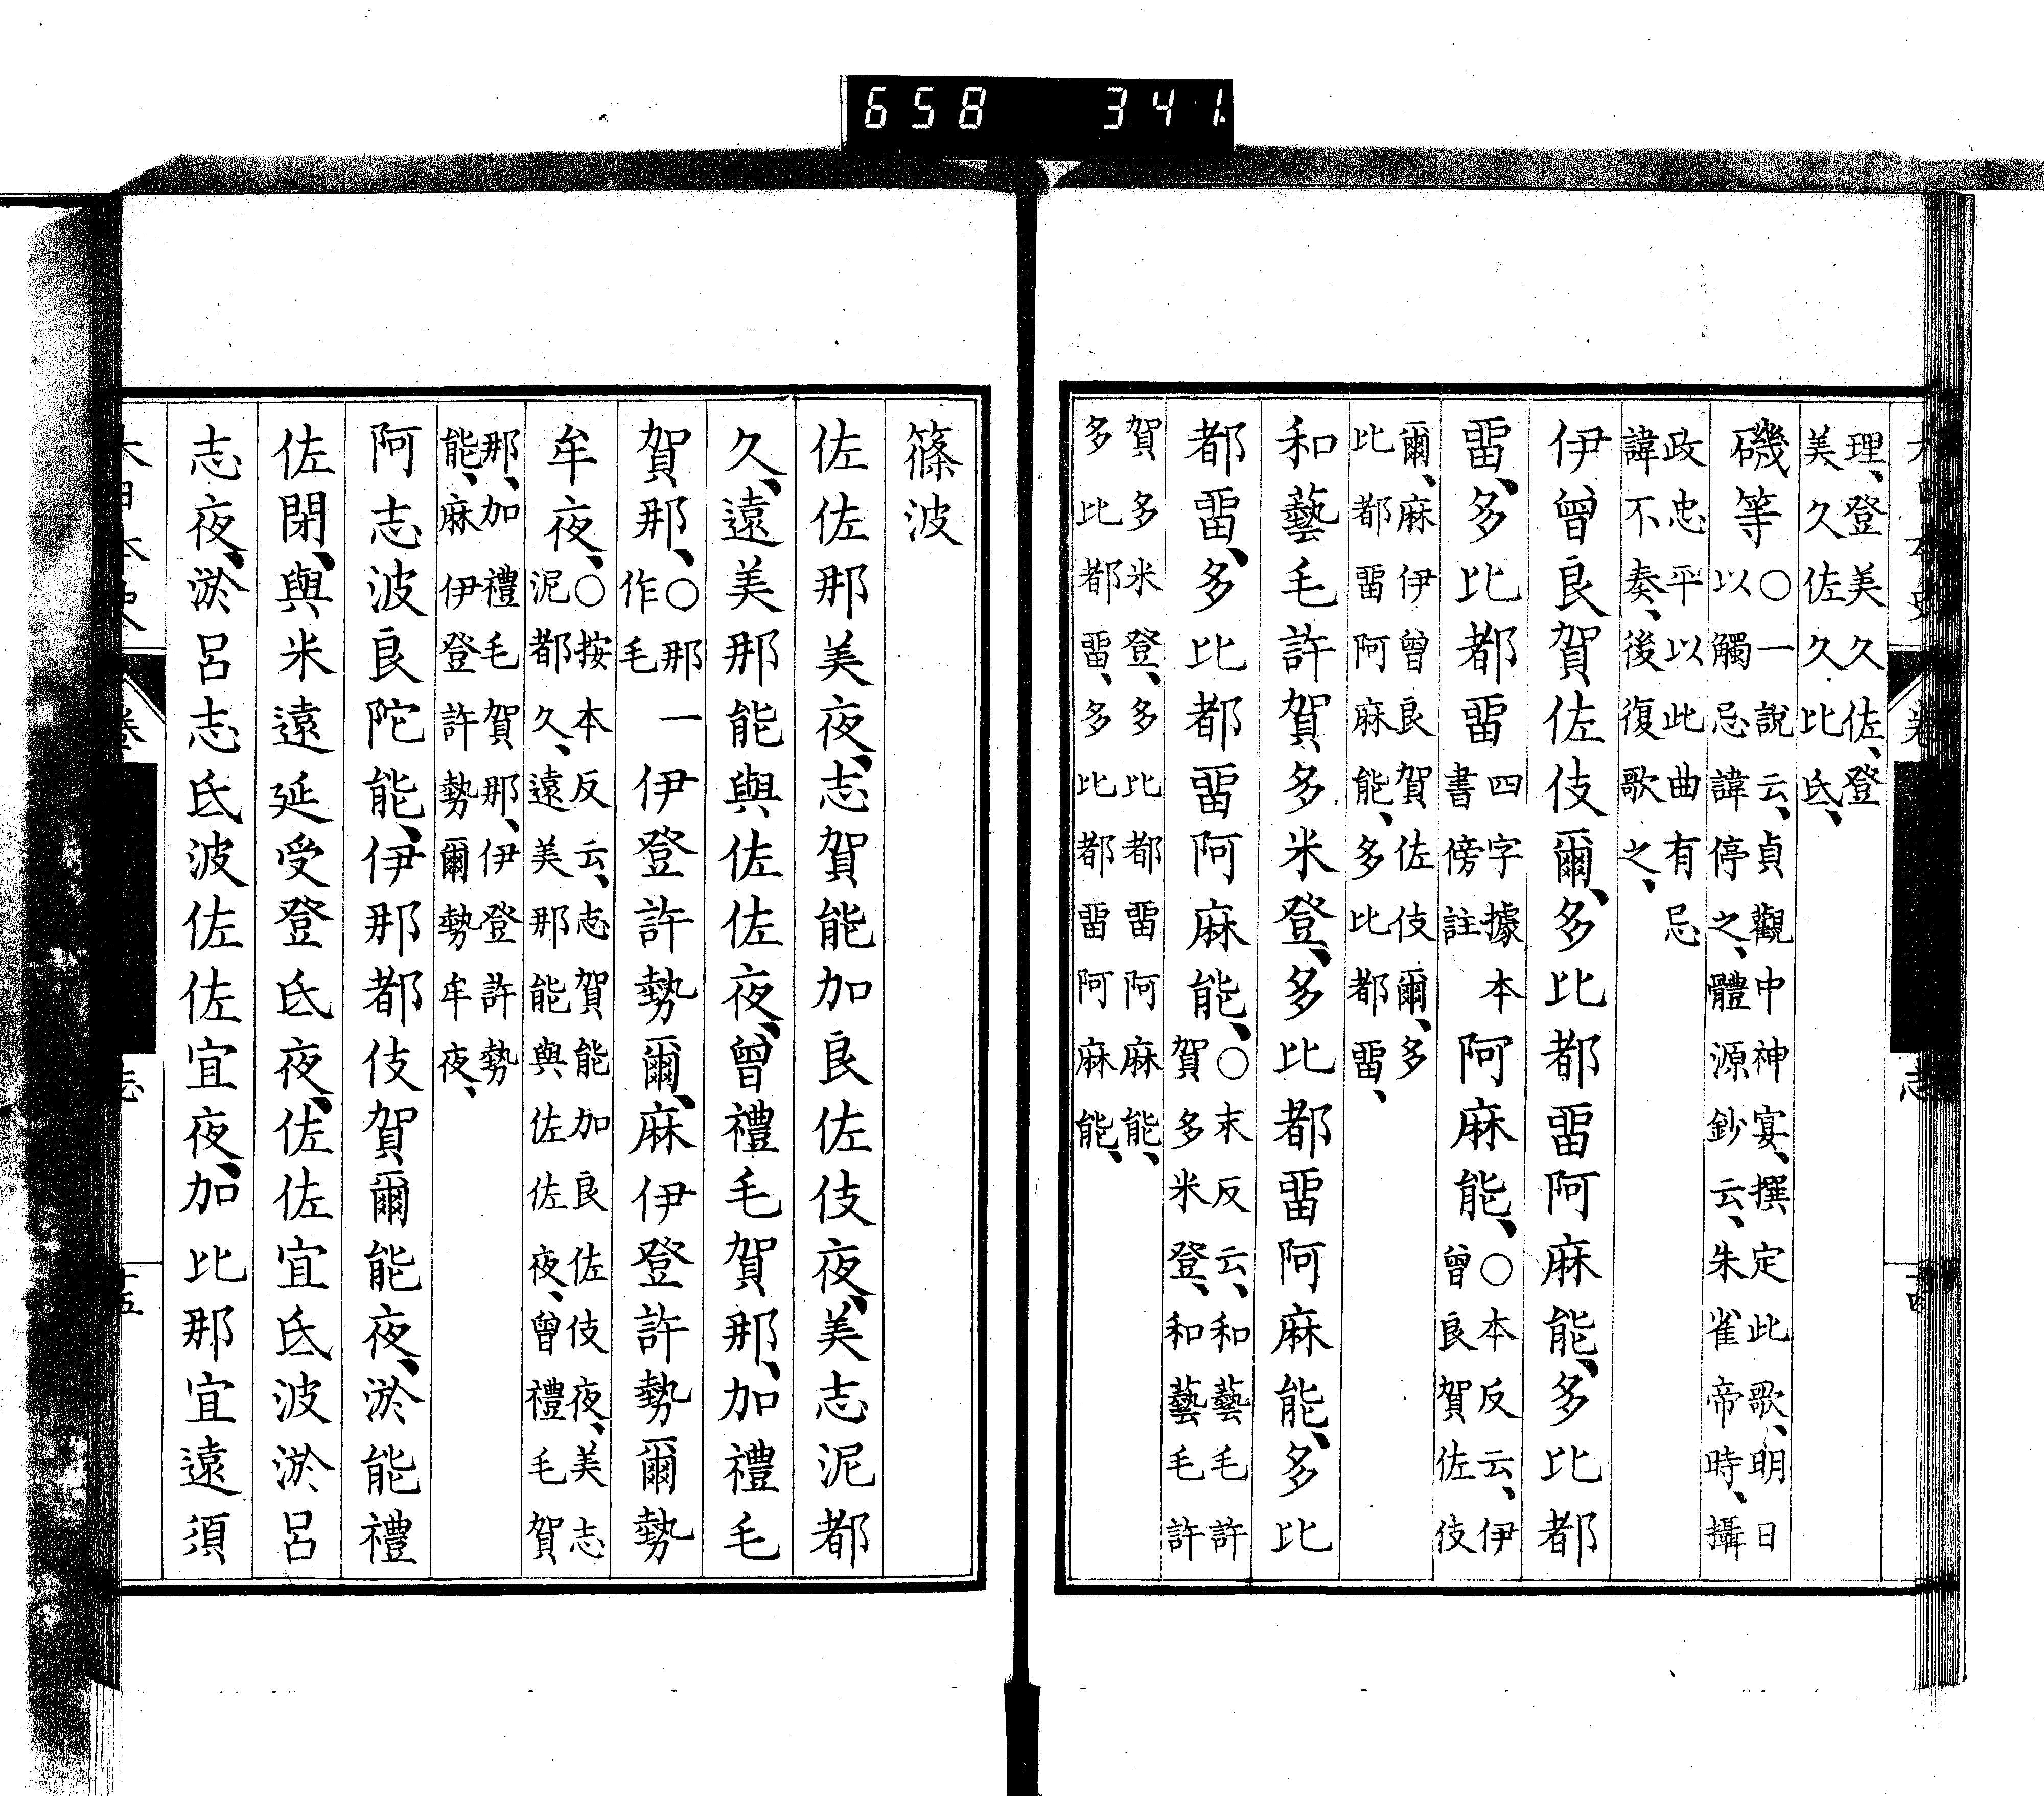 大日本史 卷 志 十四
理、登美久佐、登
美久佐久比氐、
磯等○一說云、貞觀中神宴、撰定此歌、明日
以觸忌諱停之、體源鈔云、朱雀帝時、攝
政忠平以此曲有忌
諱不奏、後復歌之、
伊曾良賀佐伎爾、多比都畱阿麻能、多比都
畱、多比都畱四字據本書傍註阿麻能、○本反云、伊
曾良賀佐伎
爾、麻伊曾良賀佐伎爾、多
比都畱阿麻能、多比都畱、
和藝毛許賀多米登、多比都畱阿麻能、多比
都畱、多比都畱阿麻能、○末反云、和藝毛許
賀多米登、和藝毛許
賀多米登、多比都畱阿麻能、
多比都畱、多比都畱阿麻能、
篠波
佐佐那美夜、志賀能加良佐伎夜、美志泥都
久、遠美那能與佐佐夜、曾禮毛賀那、加禮毛
賀那、○那一作毛伊登許勢爾、麻伊登許勢爾勢
牟夜、○按本反云、志賀能加良佐伎夜、美志
泥都久、遠美那能與佐佐夜、曾禮毛賀
那、加禮毛賀那、伊登許勢
能、麻伊登許勢爾勢牟夜、
阿志波良陀能、伊那都伎賀爾能夜、淤能禮
佐閉、與米遠延受登氐夜、佐佐宜氐波淤呂
志夜、淤呂志氐波佐佐宜夜、加比那宜遠須
大日本史 卷 志 十五
658 341